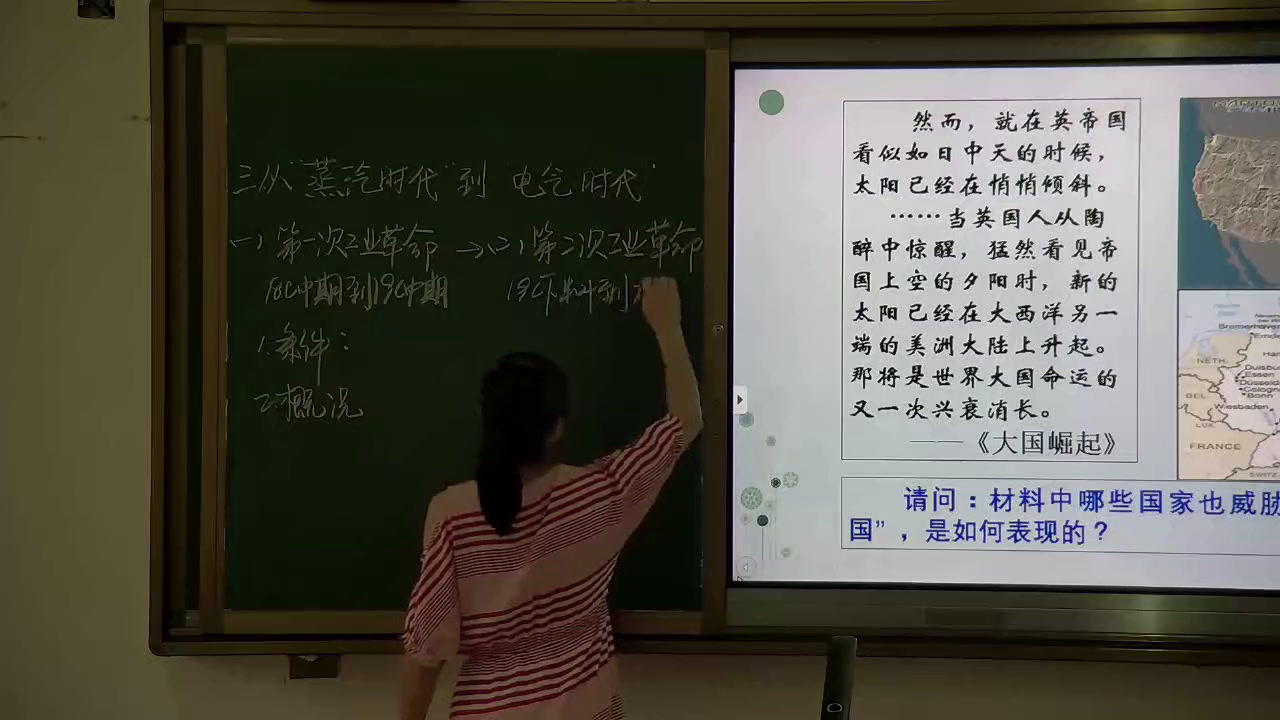 三从“蒸汽时代”到“电气时代”
(一)第一次工业革命→(二)第二次工业革命
18C中期到19C中期 19C下半叶到
1.条件：
2.概况
然而，就在英帝国
看似如日中天的时候，
太阳已经在悄悄倾斜。
……当英国人从陶
醉中惊醒，猛然看见帝
国上空的夕阳时，新的
太阳已经在大西洋另一
端的美洲大陆上升起。
那将是世界大国命运的
又一次兴衰消长。
——《大国崛起》
请问：材料中哪些国家也威胁
国”，是如何表现的？
NETH.
BEL.
LUX
FRANCE
Bremerhaven
Emde
Duisbu
Essen
Düsseld
Cologn
Bonn
Wiesbaden
SWITZ